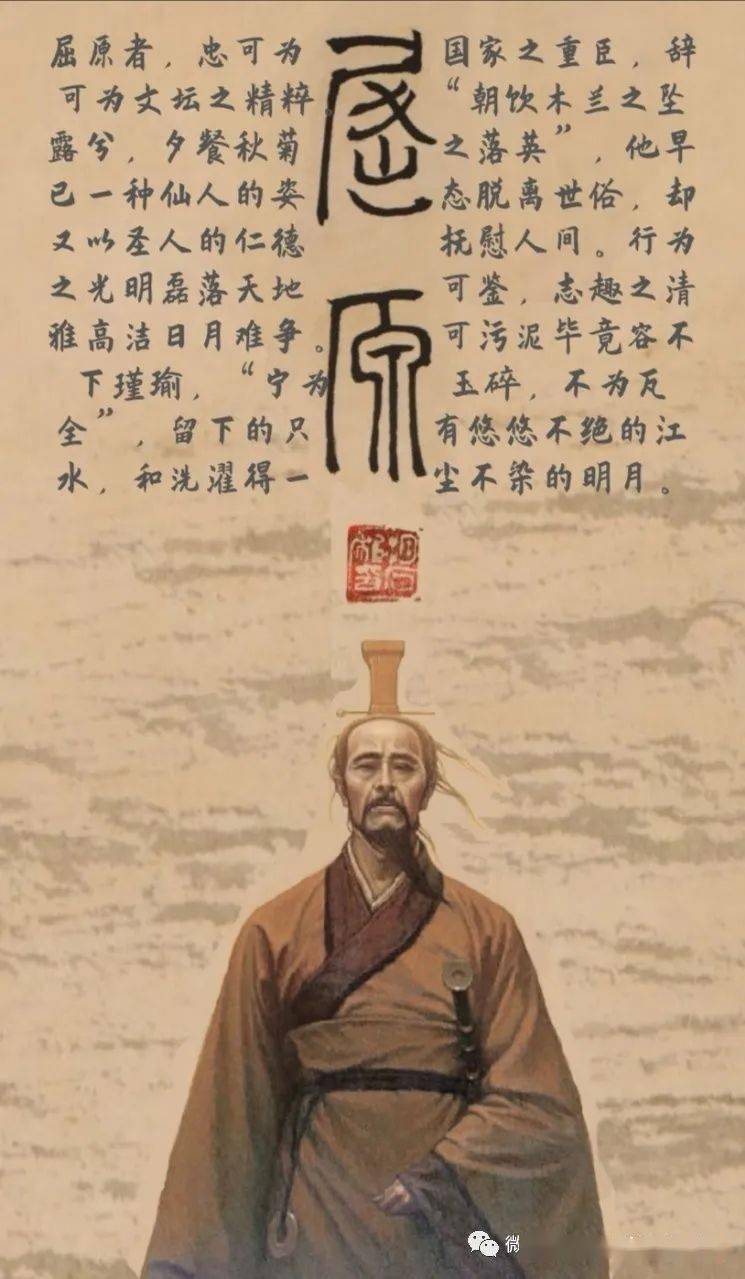 屈原
屈原者，忠可为国家之重臣，辞
可为文坛之精粹“朝饮木兰之坠
露兮，夕餐秋菊之落英”，他早
已一种仙人的姿态脱离世俗，却
又以圣人的仁德抚慰人间。行为
之光明磊落天地可鉴，志趣之清
雅高洁日月难争。可污泥毕竟容不
下瑾瑜，“宁为玉碎，不为瓦
全”，留下的只有悠悠不绝的江
水，和洗濯得一尘不染的明月。
微